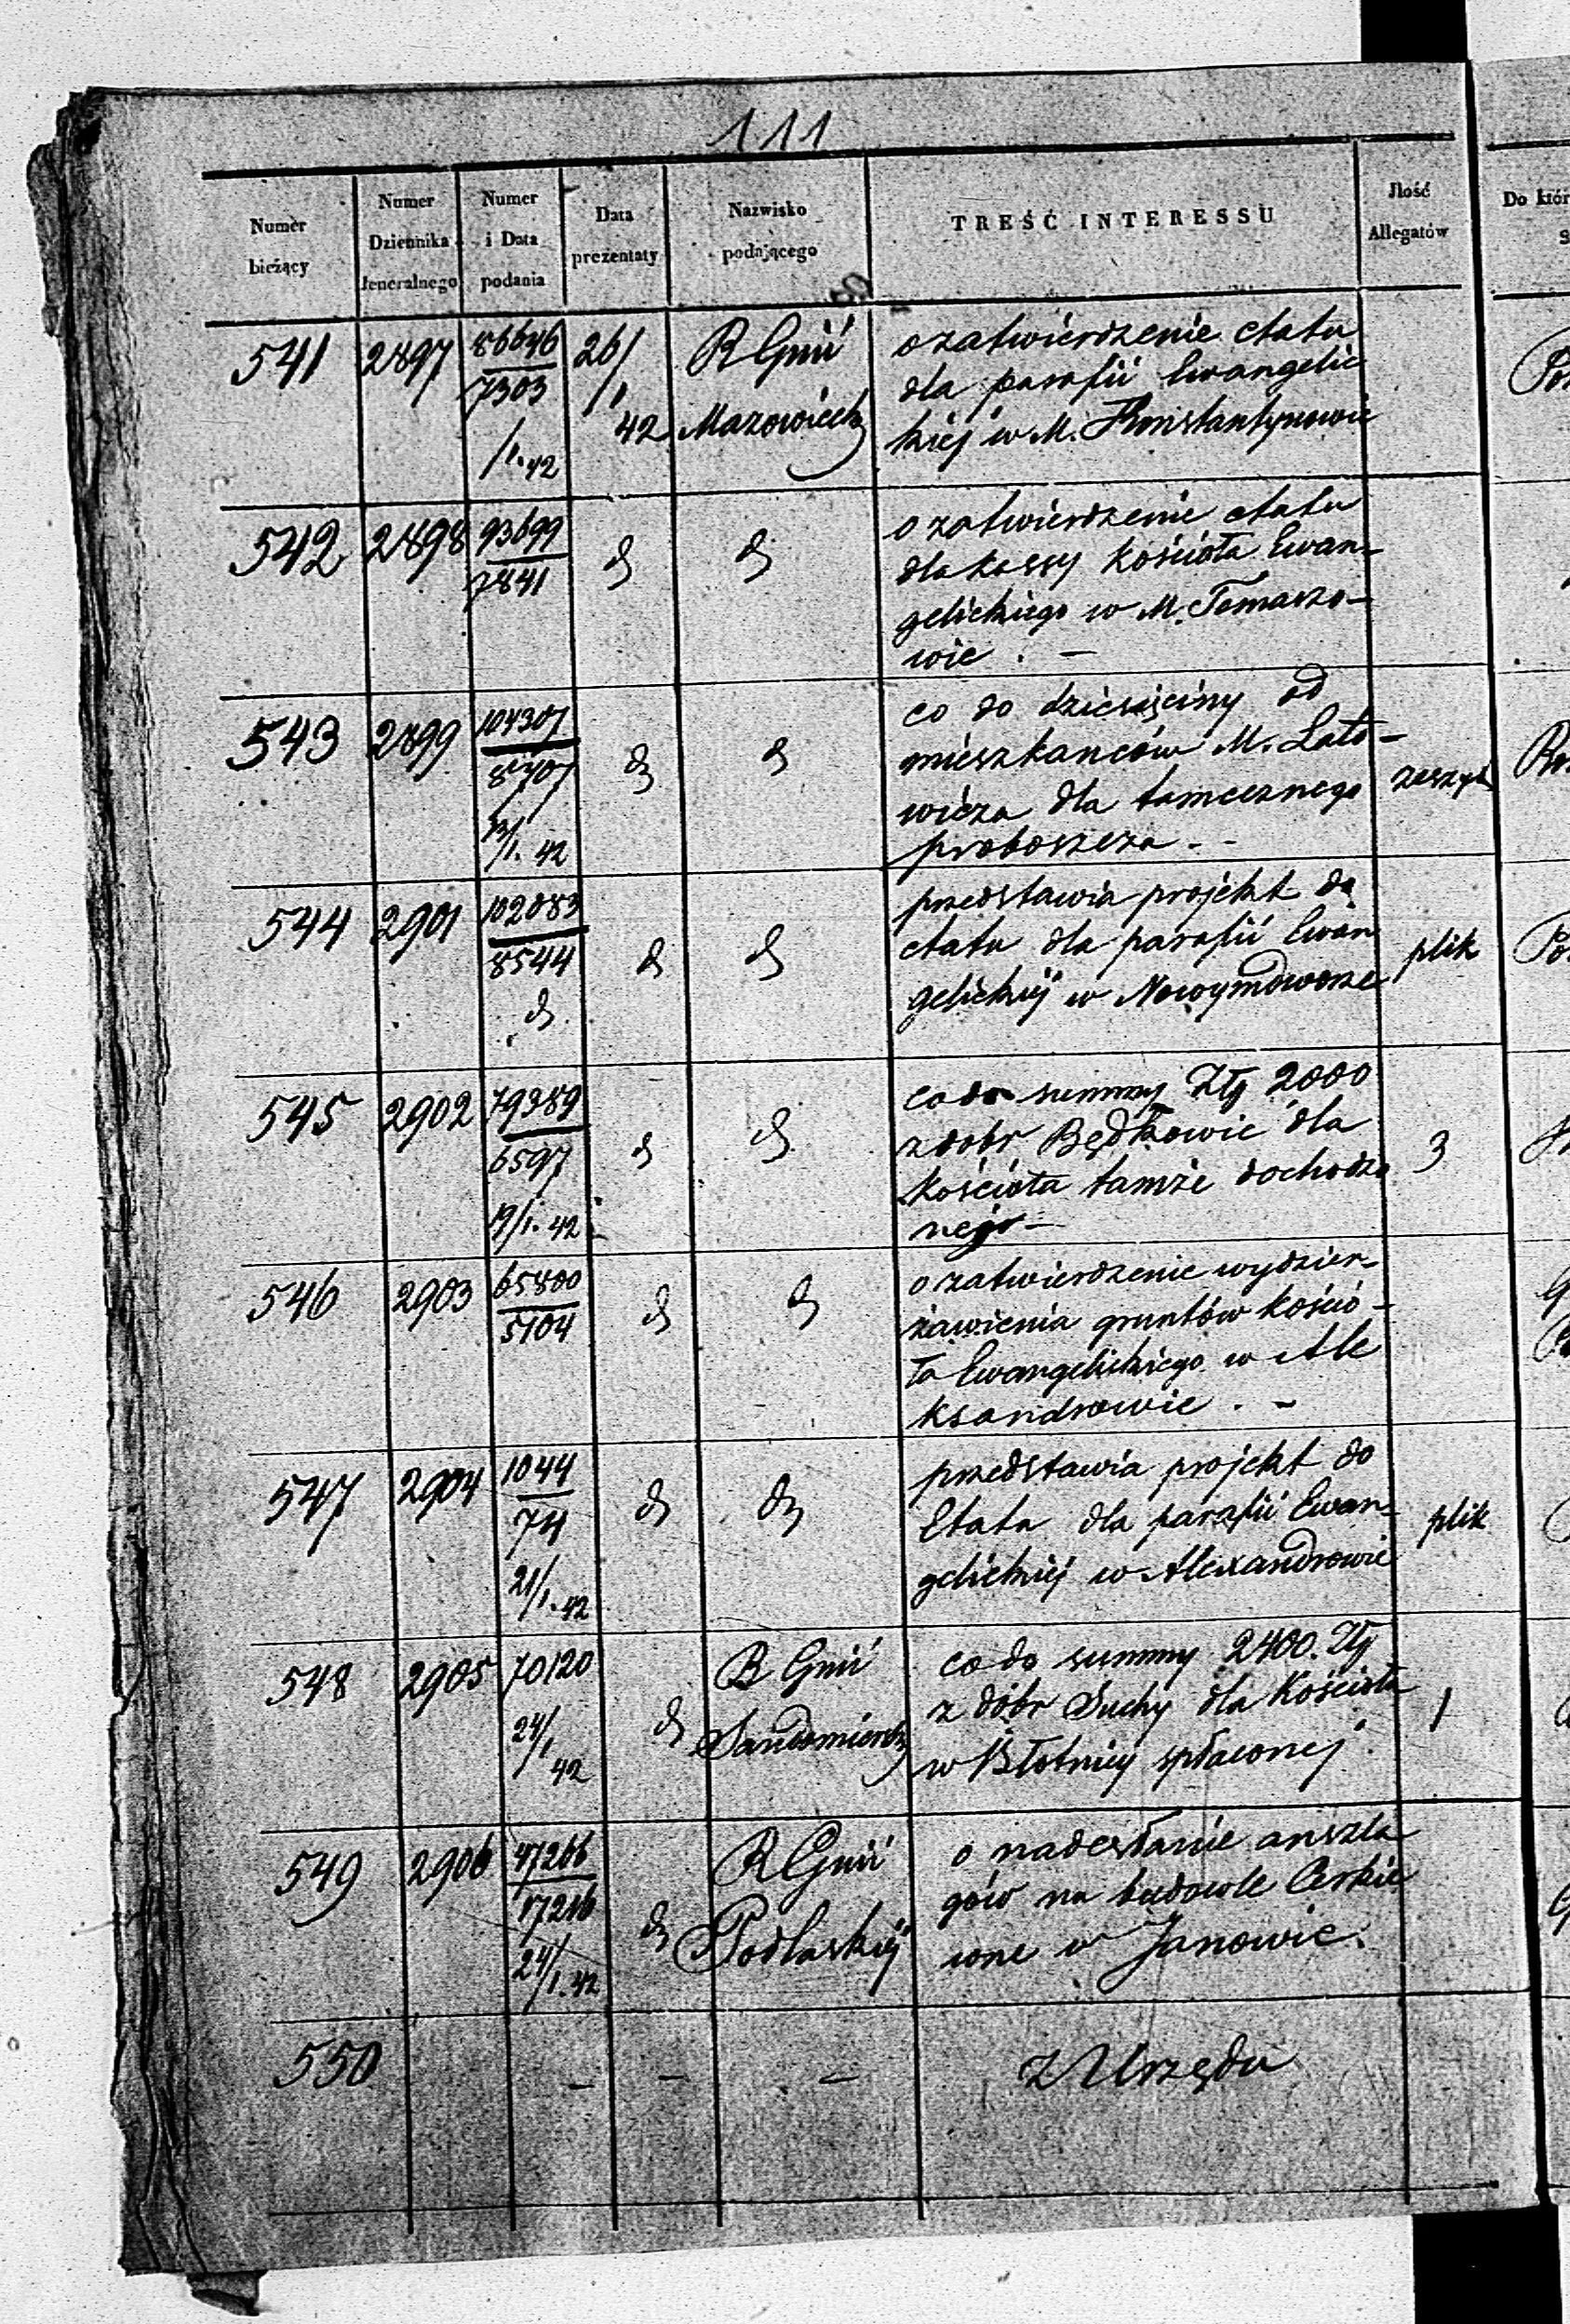 111
Numer bieżący
Numer Dziennika Jeneralnego
Numer i Data podania
Data prezentaty
Nazwisko podającego
TREŚĆ INTERESSU
Jlość Allegatów
Do któr
541 2897 86646 26/
7303 /1
/1. 42 42
R Gnii
Mazowieck
o zatwierdzenie etatu
dla parafii Ewangelic
kiej w M. Konstantynowie
542 2898 93699
7841
d d
o zatwierdzenie etatu
dla kassy kościoła Ewan-
gelickiego w M. Tomaszo-
wie . -
543 2899 104307
8707
/1. 42
d d
co do dziesięciny od
mieszkanców M. Lato-
wicza dla tamecznego
proboszcza . -
zeszyt
544 2901 102083
8544
d
d d
przedstawia projekt do
etatu dla parafii Ewan
gelickiej w Nowymdworze
plik
545 2902 79389
6597
19/1. 42
d d
co do summy Złp 2000
z dobr Będkowic dla
kościoła tamże dochodzo
nego -
3
546 2903 65800
5104
d d
o zatwierdzenie wydzier-
żawienia gruntów kościo-
ła Ewangelickiego w Ale
ksandrowie . -
547 2904 1044
74
21/1. 42
d d
przedstawia projekt do
Etatu dla parafii Ewan-
gelickiej w Alexandrowie
plik
548 2905 70120
24/1 42
d
R Gnii
Sandomiersk
co do summy 2400. Złp
z dóbr Suchy dla Kościoła
w Błotnicy spłaconej.
1
549 2906 47266
17216
24/1. 42
d
R Gnii
Podlaskiej
o nadesłanie anszla
gów na budowle Cerkie
wne w Janowie.
550 - - -
z Urzędu